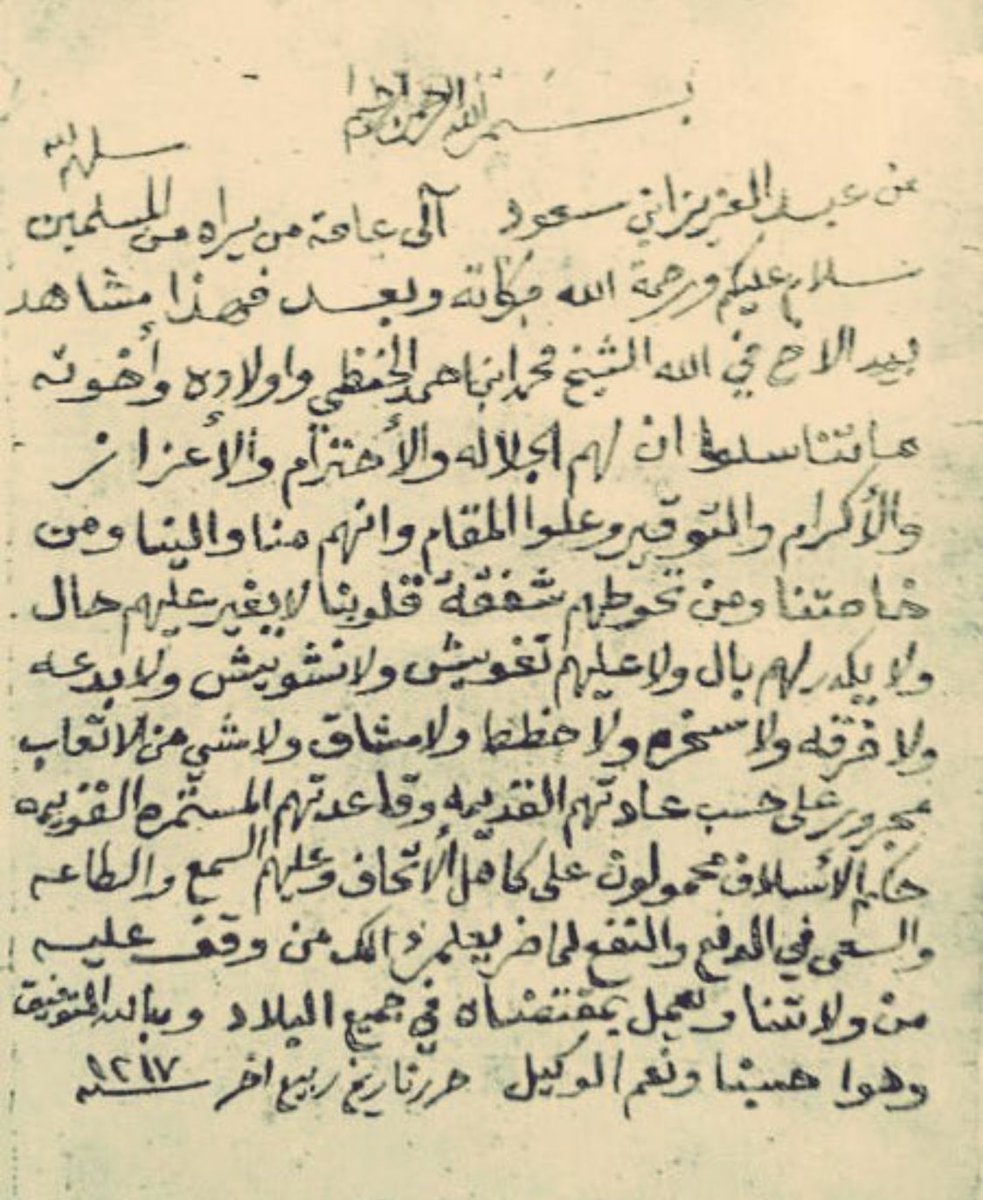 بسم الله الرحمن الرحيم
من عبد العزيز ابن سعود آلى عامة من يراه من المسلمين سلمهم الله
سلام عليكم ورحمة الله وبركاته وبعد فهذا مشاهد
بيد الاخ في الله الشيخ محمد ابن احمد الحفظي واولاده وأخوته
ماتناسلوا ان لهم الجلاله والأحترام والإعزاز
والأكرام والتوقير وعلوا المقام وانهم منا والينا ومن
خاصتنا ومن تحوطهم شفقة قلوبنا لا يغير عليهم حال
ولا يكدر لهم بال ولا عليهم تغويش ولا تشويش ولا بدعه
ولا فرقه ولا سخره ولا ولا مشاق ولا شي من الاتعاب
مجرور على حسب عادتهم القديمه وقاعدتهم المستمره القويمه
الأسلاف محمولون على كاهل الأتحاف وعليهم السمع والطاعه
والسعى في الدفع والنفع يعلم ذالك من وقف عليه
من ولاتنا ويعمل بمقتضاه في جميع البلاد وبالله التوفيق
وهوا حسبنا ونعم الوكيل حرر تاريخ ربيع اخر سنة ١٢١٧